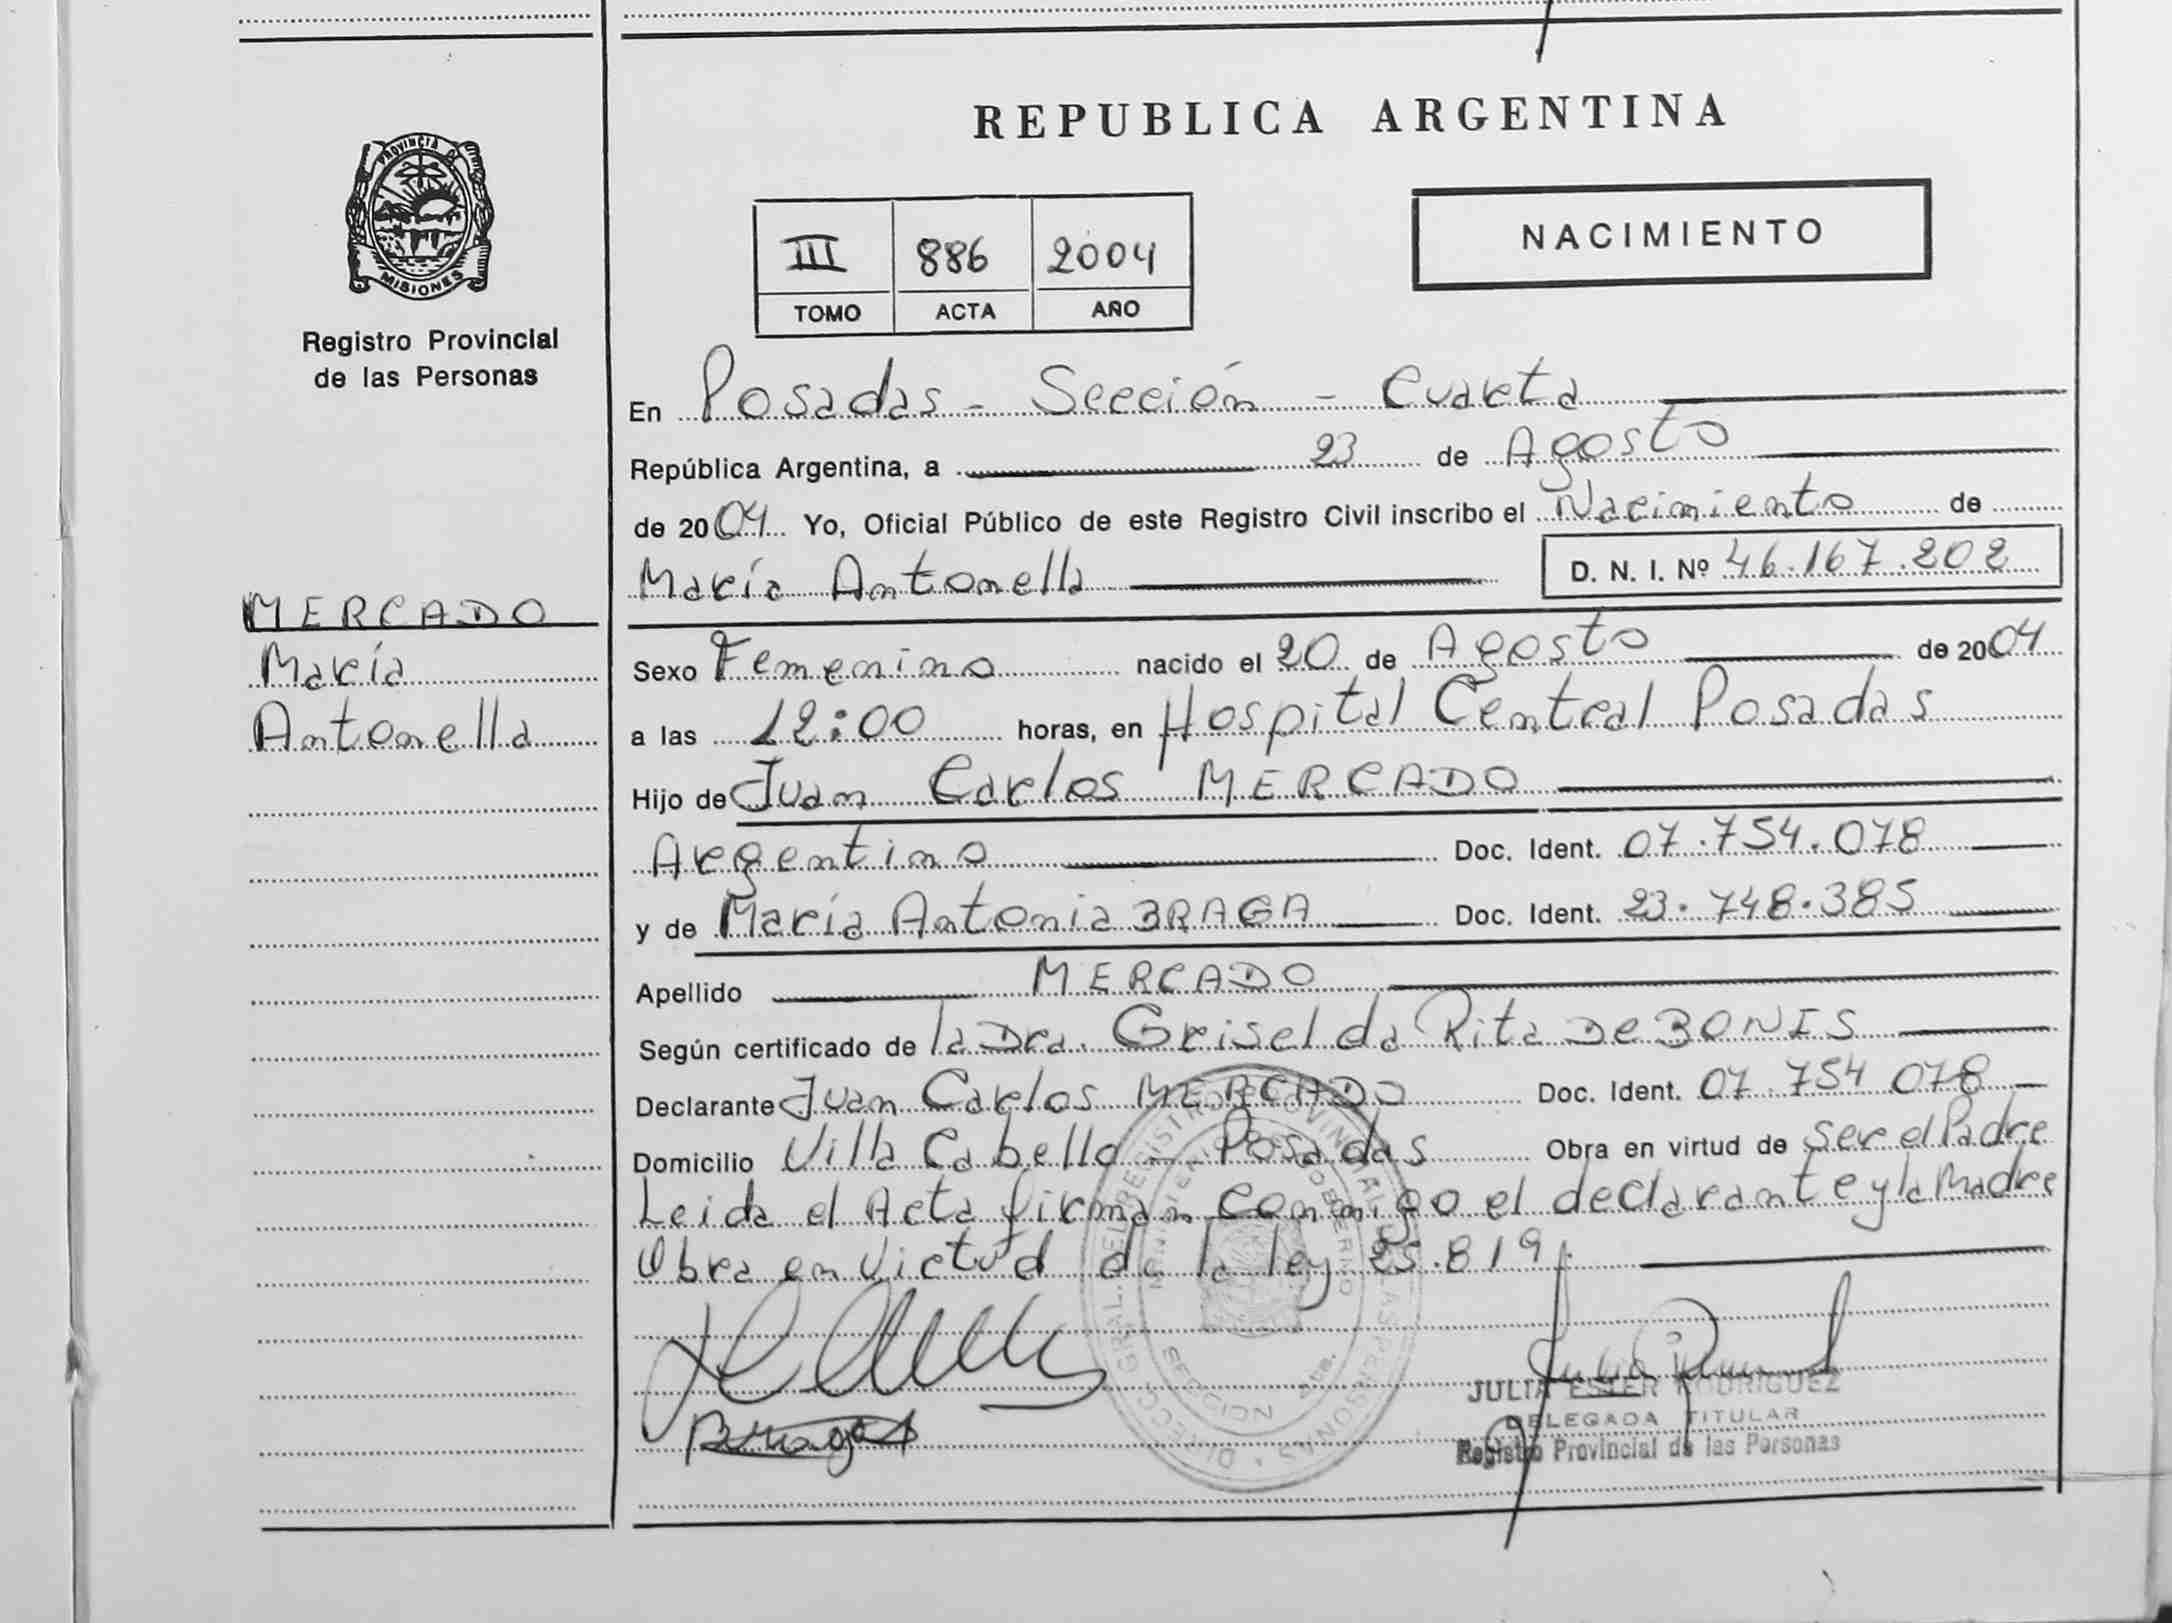 REPUBLICA ARGENTINA
PROVINCIA DE
MISIONES
Registro Provincial
de las Personas
NACIMIENTO
III 886 2004
TOMO ACTA AÑO
En Posadas - Sección - Cuarta
República Argentina, a 23 de Agosto
de 2004 Yo, Oficial Público de este Registro Civil inscribo el Nacimiento de
María Antonella D. N. I. Nº 46.167.202
MERCADO
María
Antonella
Sexo Femenino nacido el 20 de Agosto de 2004
a las 12:00 horas, en Hospital Central Posadas
Hijo de Juan Carlos MERCADO
Argentino Doc. Ident. 07.754.078
y de María Antonia BRAGA Doc. Ident. 23.748.385
Apellido MERCADO
Según certificado de la Dra. Griselda Rita De BONIS
Declarante Juan Carlos MERCADO Doc. Ident. 07.754 078
Domicilio Villa Cabello - Posadas Obra en virtud de ser el Padre
Leida el Acta firman conmigo el declarante y la Madre
Obra en virtud de la ley 25.819
JULIA ESTER RODRIGUEZ
DELEGADA TITULAR
Registro Provincial de las Personas